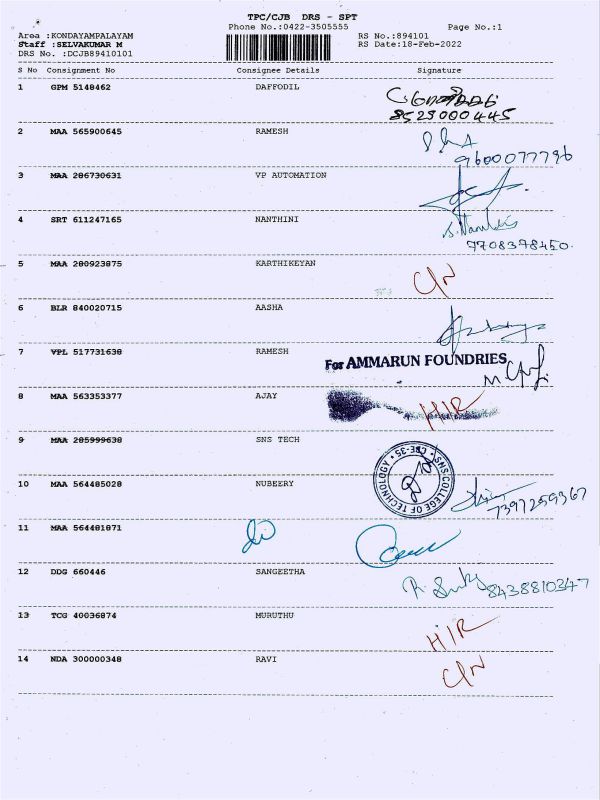 TPC/CJB DRS - SPT
Phone No.:0422-3505555 Page No.:1
Area :KONDAYAMPALAYAM RS No.:894101
Staff :SELVAKUMAR M RS Date:18-Feb-2022
DRS No. :DCJB89410101
S No Consignment No Consignee Details Signature
1 GPM 5148462 DAFFODIL
8523000445
2 MAA 565900645 RAMESH
9600077796
3 MAA 286730631 VP AUTOMATION
4 SRT 611247165 NANTHINI
7708378450
5 MAA 280923875 KARTHIKEYAN C/N
6 BLR 840020715 AASHA
7 VPL 517731638 RAMESH For AMMARUN FOUNDRIES
8 MAA 563353377 AJAY H/R
9 MAA 285999638 SNS TECH
SNS COLLEGE OF TECHNOLOGY • CBE-35 •
10 MAA 564485028 NUBEERY
7397259367
11 MAA 564481871
12 DDG 660446 SANGEETHA
8438810347
13 TCG 40036874 MURUTHU H/R
14 NDA 300000348 RAVI C/N